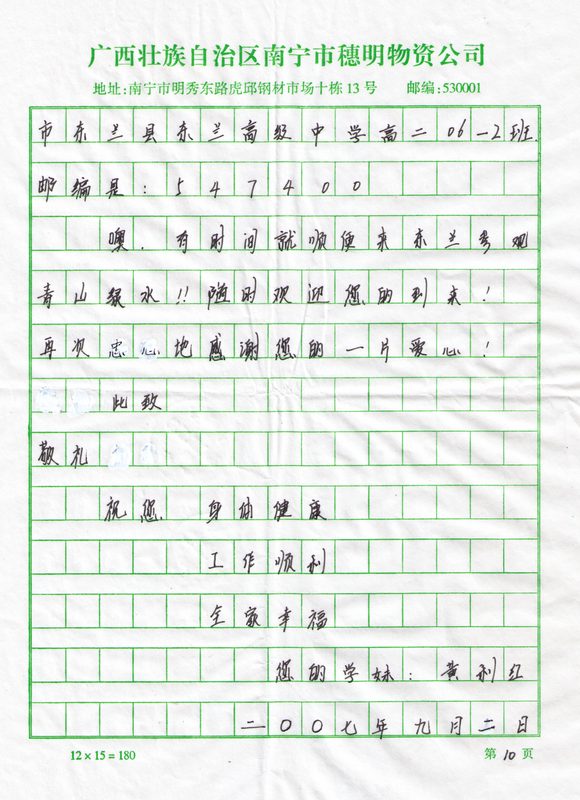 广西壮族自治区南宁市穗明物资公司
地址:南宁市明秀东路虎邱钢材市场十栋13号 邮编:530001
市东兰县东兰高级中学高二06-2班.
邮编是:547400
噢.有时间就顺便来东兰参观
青山绿水!!随时欢迎您的到来!
再次忠心地感谢您的一片爱心!
此致
敬礼
祝您 身体健康
工作顺利
全家幸福
您的学妹:黄利红
二〇〇七年九月二日
12×15=180 第10页